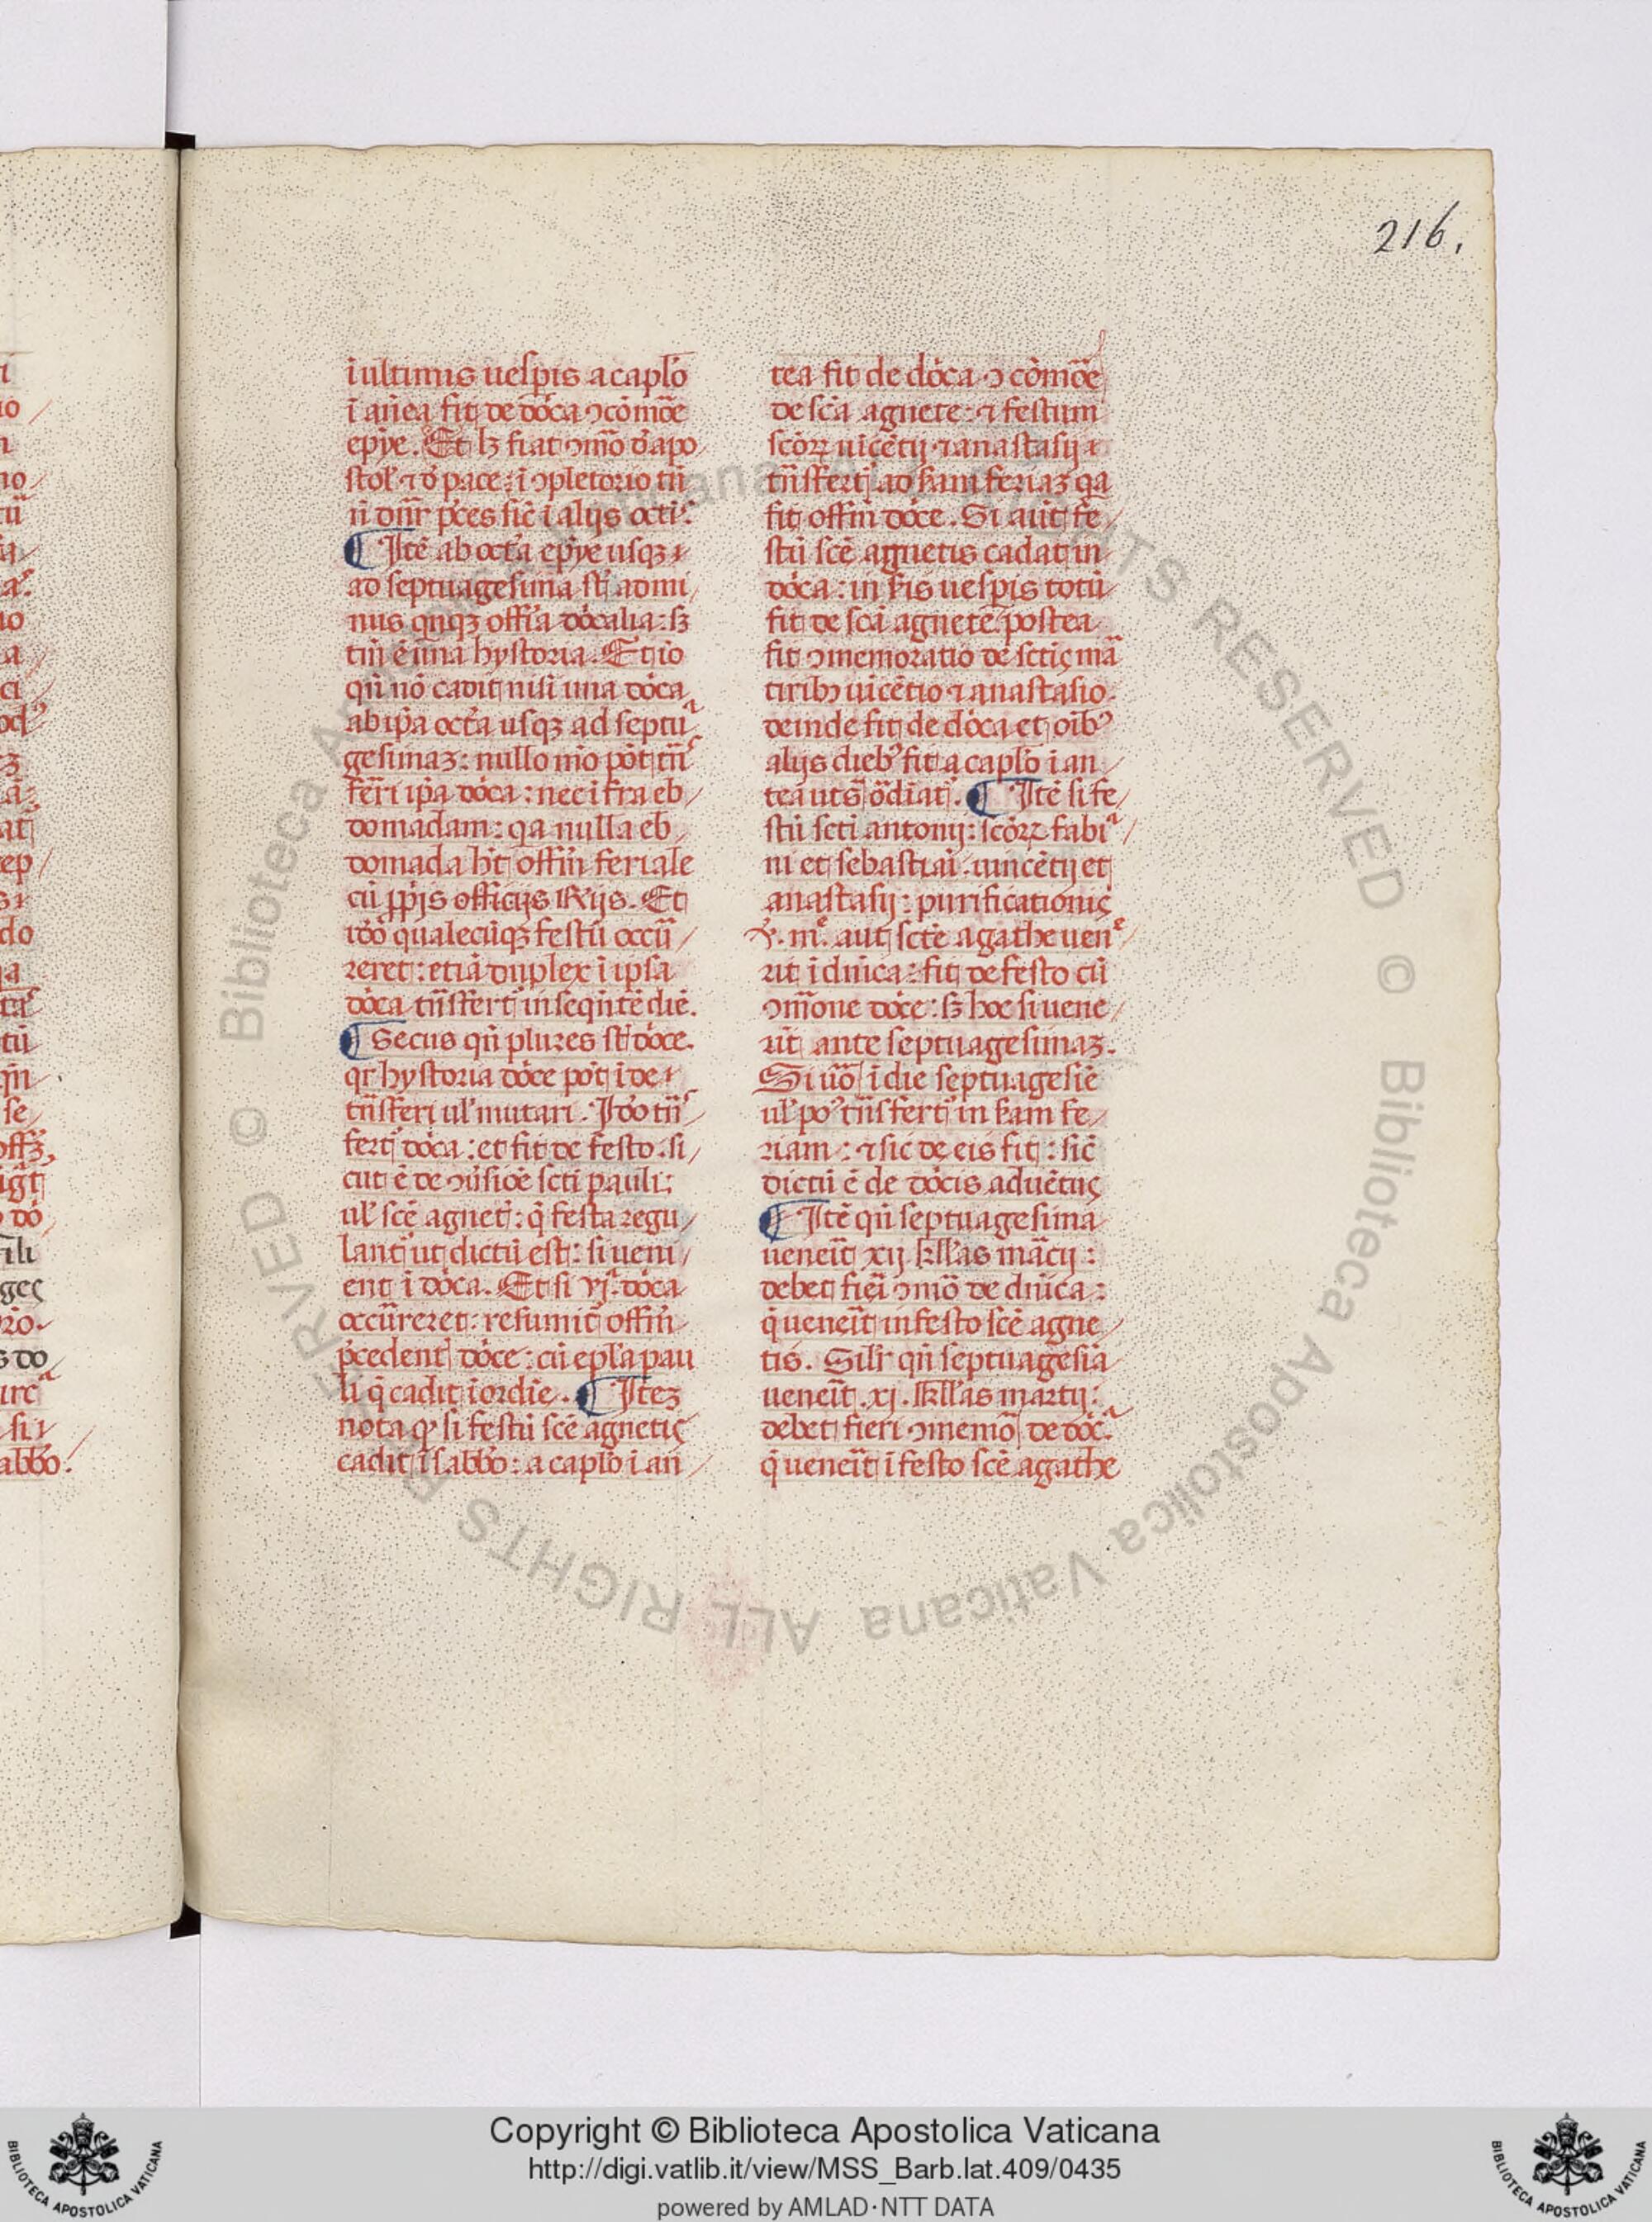 216.
ı̄ ultimis uesp̄is a cap̄lo
ı̄ an̄ea fit de dōca ⁊ cōmōe
ep̄ye. Et lꝫ fiat ꝯmō d̄ apo
stol. ⁊ d̄ pace: ı̄ ꝯpletorio tn̄
n̄ dn̄r p̄ces sic̄ ı̄ alijs oct̄i.
¶ Itē ab oct̄a ep̄ye usqꝫ
ad septuagesima st̄ ad mi
nus qn̄qꝫ offīa dōcalia: sꝫ
tm̄ ē una hystoria. Et iō
qn̄ nō cadit nisi una dōca
ab ip̄a oct̄a usqꝫ ad septua
gesimaꝫ: nullo mō pōt tn̄s
ferri ip̄a dōca: nec ı̄fra eb
domadam: qa nulla eb
domada h̄t offm̄ feriale
cū ꝓp̄ijs officijs R̄ijs. Et
iđo qualecūqꝫ festū occu
reret: etiā duplex ı̄ ipsa
dōca tn̄sfert̄ in seqn̄tē diē.
¶ Secus qn̄ plures st̄ dōce.
qr hystoria dōce pōt ı̄de
tn̄sferi ul̄ mutari. Iđo tn̄s
fert̄ dōca: et fit de festo. si
cut ē de ꝯuersiōe sc̄ti pauli:
ul̄ sc̄e agnet̄: q̄ festa regu
lant̄ ut dictū est: si ueni
ent ı̄ dōca. Et si vj.ᵃ dōca
occūreret: resumit̄ offm̄
p̄cedent̄ dōce: cū ep̄la pau
li q̄ cadit ı̄ ordīe. ¶ Iteꝫ
nota qꝫ si festū sc̄e agnetis
cadit ı̄ sabb̄o: a cap̄lo ı̄ an
tea fit de dōca. ⁊ cōmōe
de sc̄a agnete: ⁊ festum
sc̄oꝝ uı̄cētij ⁊ anastasij
tn̄sfert̄ ad s̄am feriaꝫ qa
fit offm̄ dōce. Si aūt fe
stū sc̄e agnetis cadat in
dōca: in s̄is uesp̄is totū
fit de sc̄a agnete postea
fit ꝯmemoratio de sc̄tis mar
tiribꝫ uı̄cētio ⁊ anastasio.
deinde fit de dōca et oīb᾽
alijs dieb᾽ fit a cap̄lo ı̄ an
tea ut s̄ ōdiat̄. ¶ Itē si fe
stū sc̄ti antonij: sc̄oꝝ fabia
ni et sebastiai. uincētij et
anastasij: purificationis
v. m. aut sc̄te agathe uene
rit ı̄ dn̄ica: fit de festo cū
ꝯm̄one dōce: sꝫ hoc si uene
rit ante septuagesimaꝫ.
Si uō ı̄ die septuagesie
ul̄ po᾽ tn̄sfert̄ in s̄am fe
riam: ⁊ sic de eis fit: sic̄
dictū ē de dōcis aduētus
¶ Itē qn̄ septuagesima
ueneit̄ xij. kl̄l̄as mar̄cij:
debet fiei ꝯmō de dn̄ica:
q̄ ueneit̄ in festo sc̄e agne
tis. Silr̄ qn̄ septuagesia
ueneit̄. xj. kl̄l̄as martij:
debet fieri ꝯmemō de dōcᵃ
q̄ ueneit̄ ı̄ festo sc̄e agathe
Copyright © Biblioteca Apostolica Vaticana
http://digi.vatlib.it/view/MSS_Barb.lat.409/0435
powered by AMLAD·NTT DATA